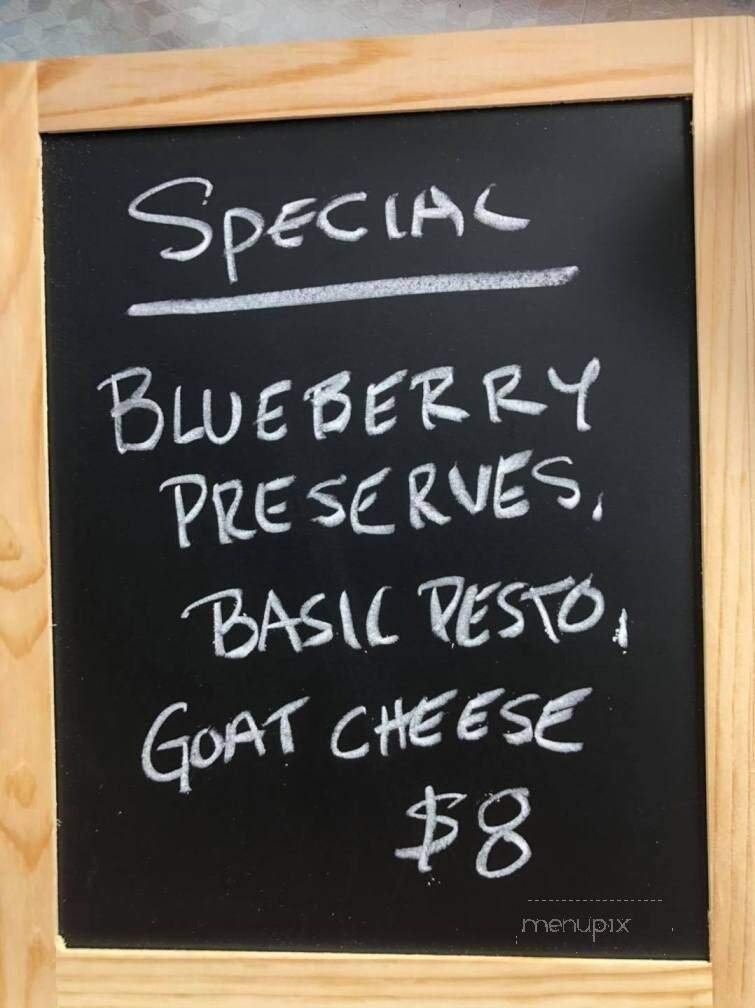 SPECIAL
BLUEBERRY
PRESERVES,
BASIC PESTO,
GOAT CHEESE
$8
menupix